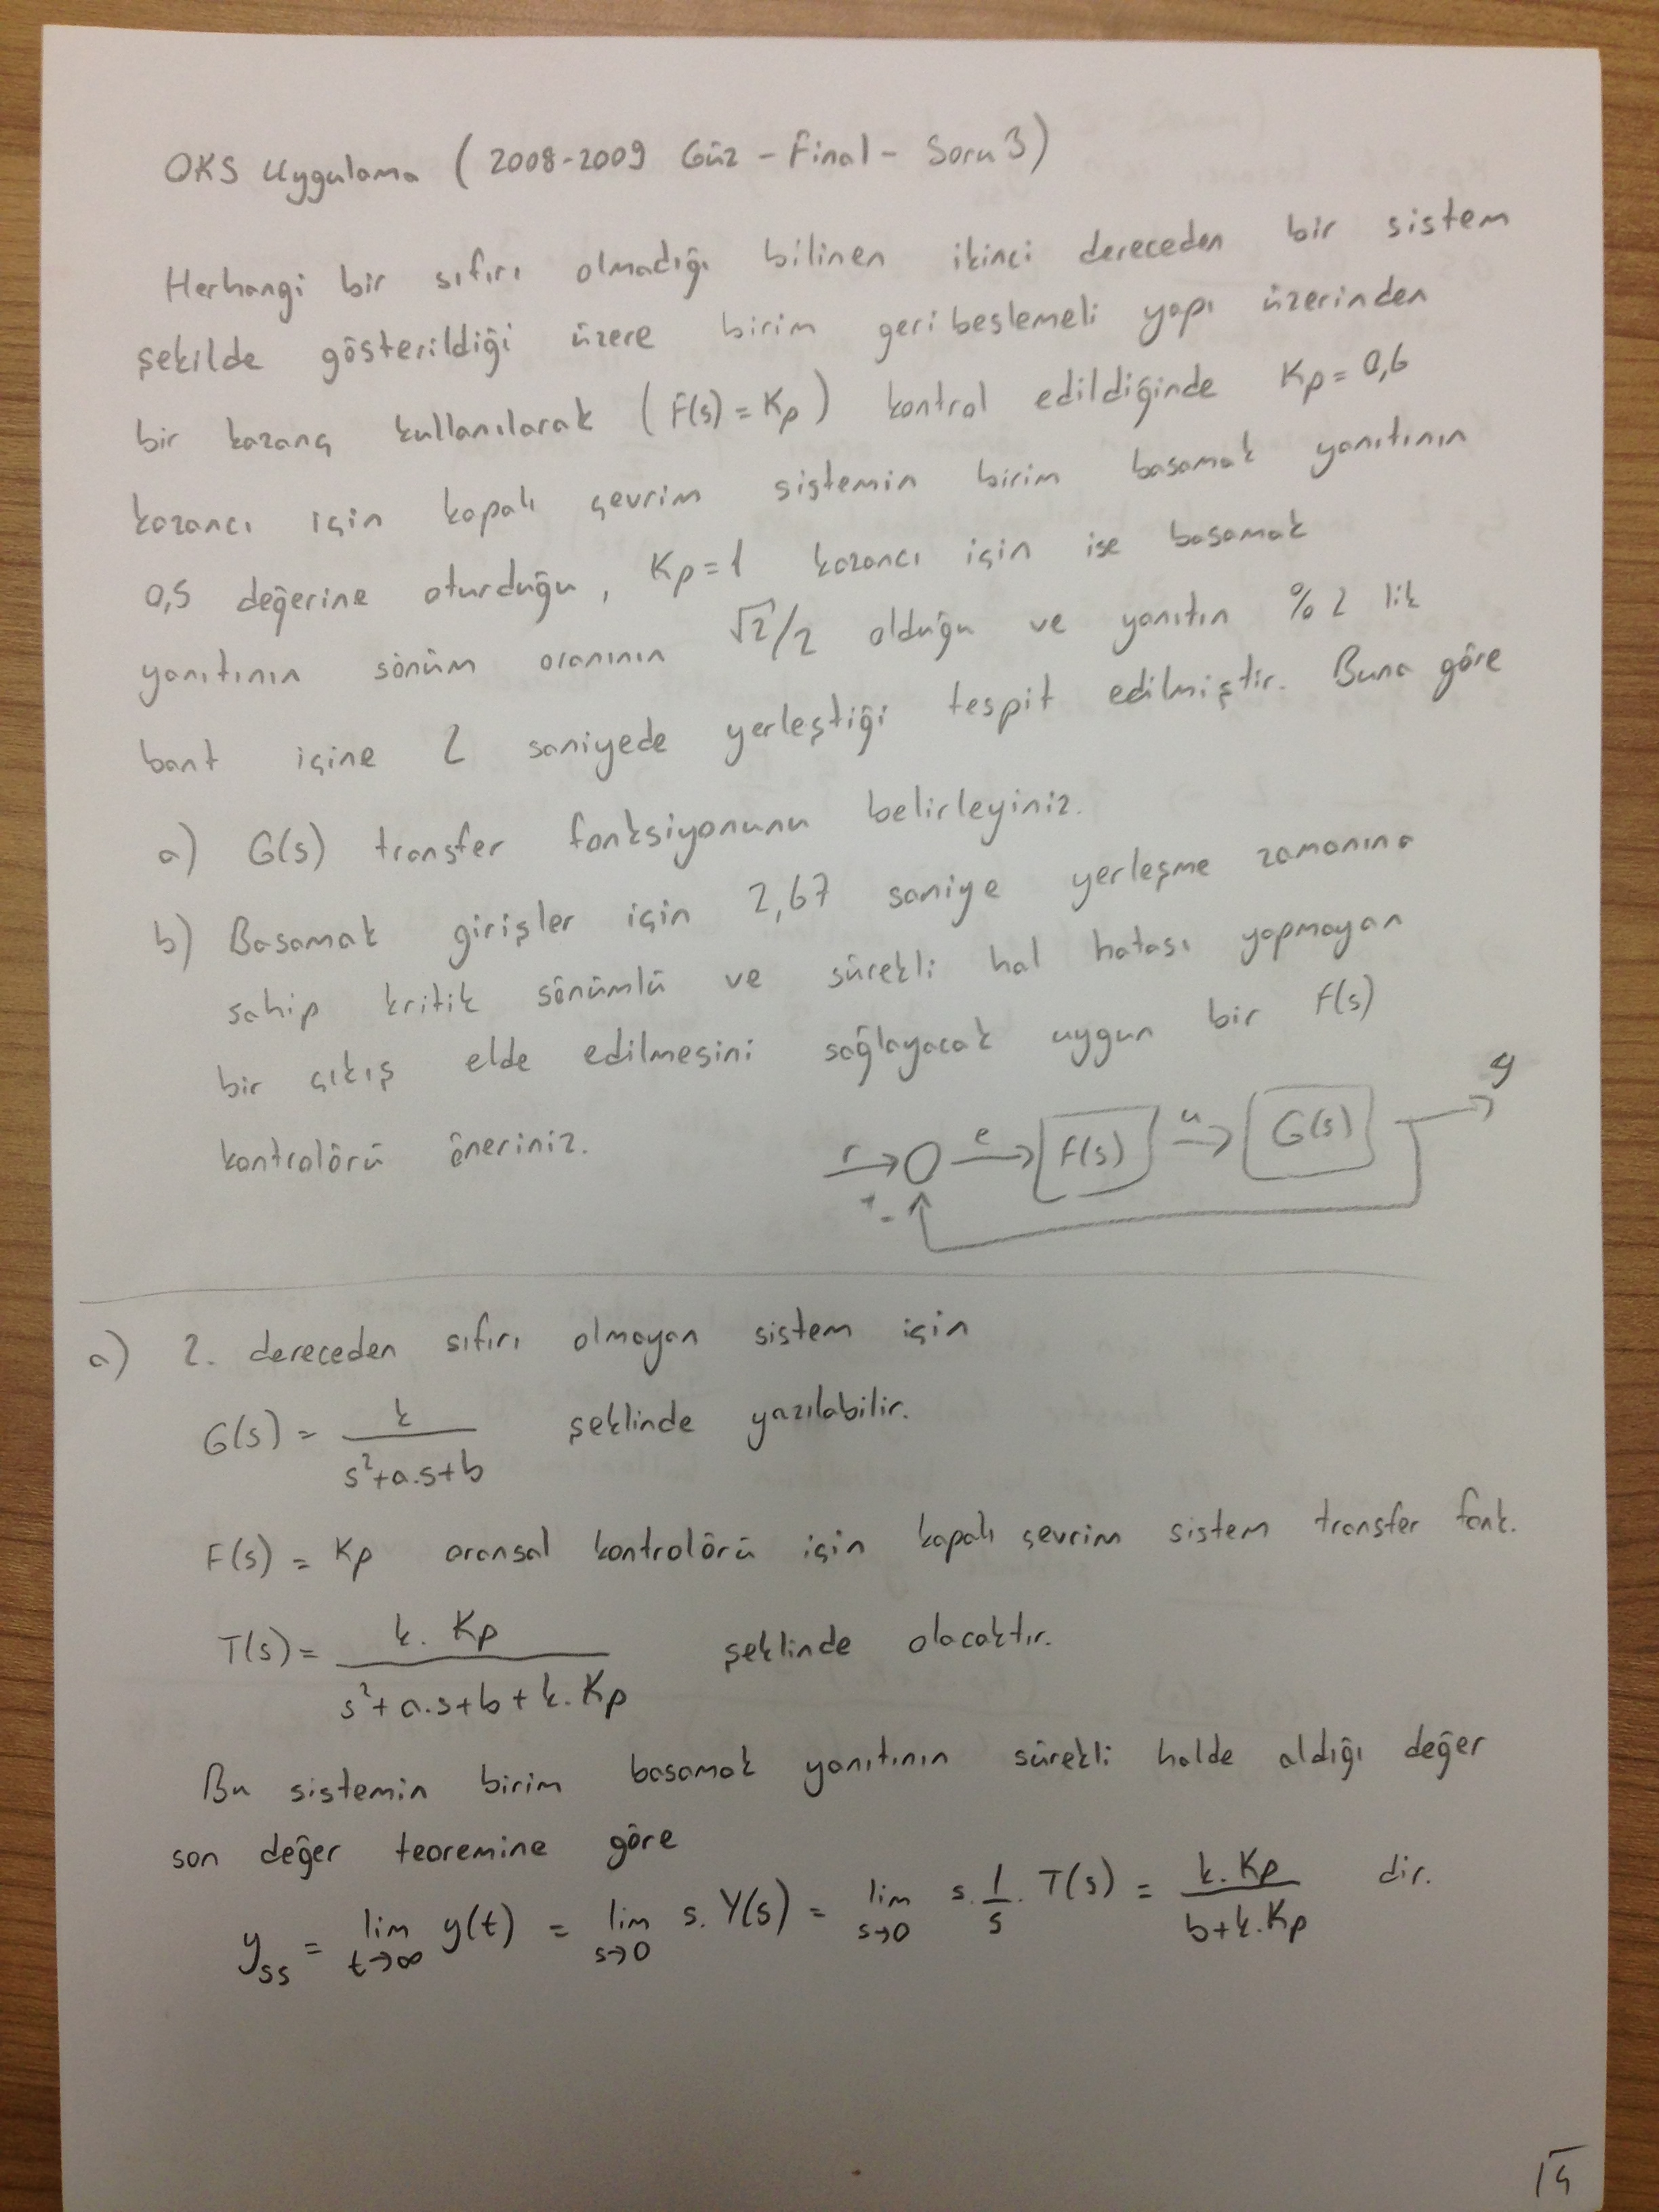 OKS Uygulama (2008-2009 Güz - Final - Soru 3)
Herhangi bir sıfırı olmadığı bilinen ikinci dereceden bir sistem
şekilde gösterildiği üzere birim geribeslemeli yapı üzerinden
bir kazanç kullanılarak (F(s) = Kp) kontrol edildiğinde Kp = 0,6
kazancı için kapalı çevrim sistemin birim basamak yanıtının
0,5 değerine oturduğu, Kp = 1 kazancı için ise basamak
yanıtının sönüm oranının √2/2 olduğu ve yanıtın %2 lik
bant içine 2 saniyede yerleştiği tespit edilmiştir. Buna göre
a) G(s) transfer fonksiyonunu belirleyiniz.
b) Basamak girişler için 2,67 saniye yerleşme zamanına
sahip kritik sönümlü ve sürekli hal hatası yapmayan
bir çıkış elde edilmesini sağlayacak uygun bir F(s)
kontrolörü öneriniz.
r + - e F(s) u G(s) y
a) 2. dereceden sıfırı olmayan sistem için
G(s) = k / (s²+a.s+b) şeklinde yazılabilir.
F(s) = Kp oransal kontrolörü için kapalı çevrim sistem transfer fonk.
T(s) = k. Kp / (s²+a.s+b+k.Kp) şeklinde olacaktır.
Bu sistemin birim basamak yanıtının sürekli halde aldığı değer
son değer teoremine göre
y_ss = lim t→∞ y(t) = lim s→0 s.Y(s) = lim s→0 s.1/s.T(s) = k.Kp / (b+k.Kp) dir.